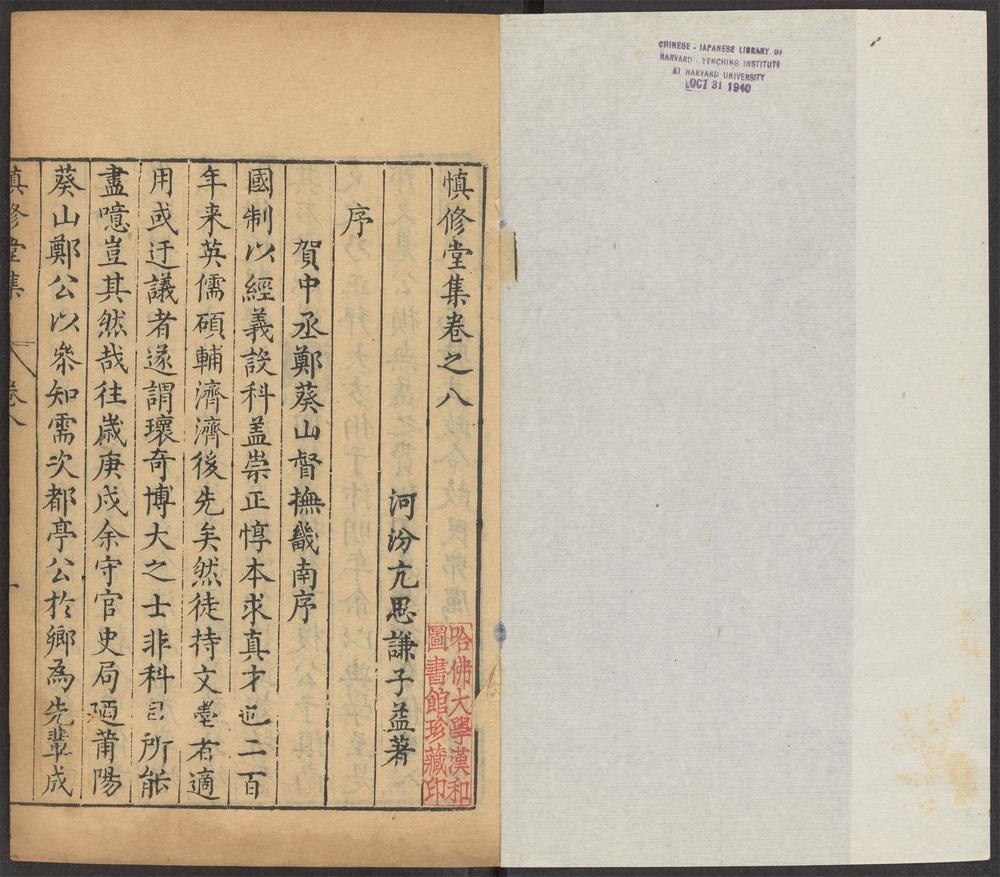 CHINESE - JAPANESE LIBRARY OF
HARVARD - YENCHING INSTITUTE
AT HARVARD UNIVERSITY
OCT 31 1940
慎修堂集卷之八
河汾亢思謙子益著
序
賀中丞鄭葵山督撫畿南序
國制以經義設科盖崇正惇本求真才也二百
年来英儒碩輔濟濟後先矣然徒持文墨者適
用或迂議者遂謂瓌奇博大之士非科目所能
盡噫豈其然哉往歲庚戌余守官史局廼莆陽
葵山鄭公以叅知需次都亭公於鄉為先輩成
慎修堂集
卷八
一
哈佛大學漢和
圖書館珍藏印